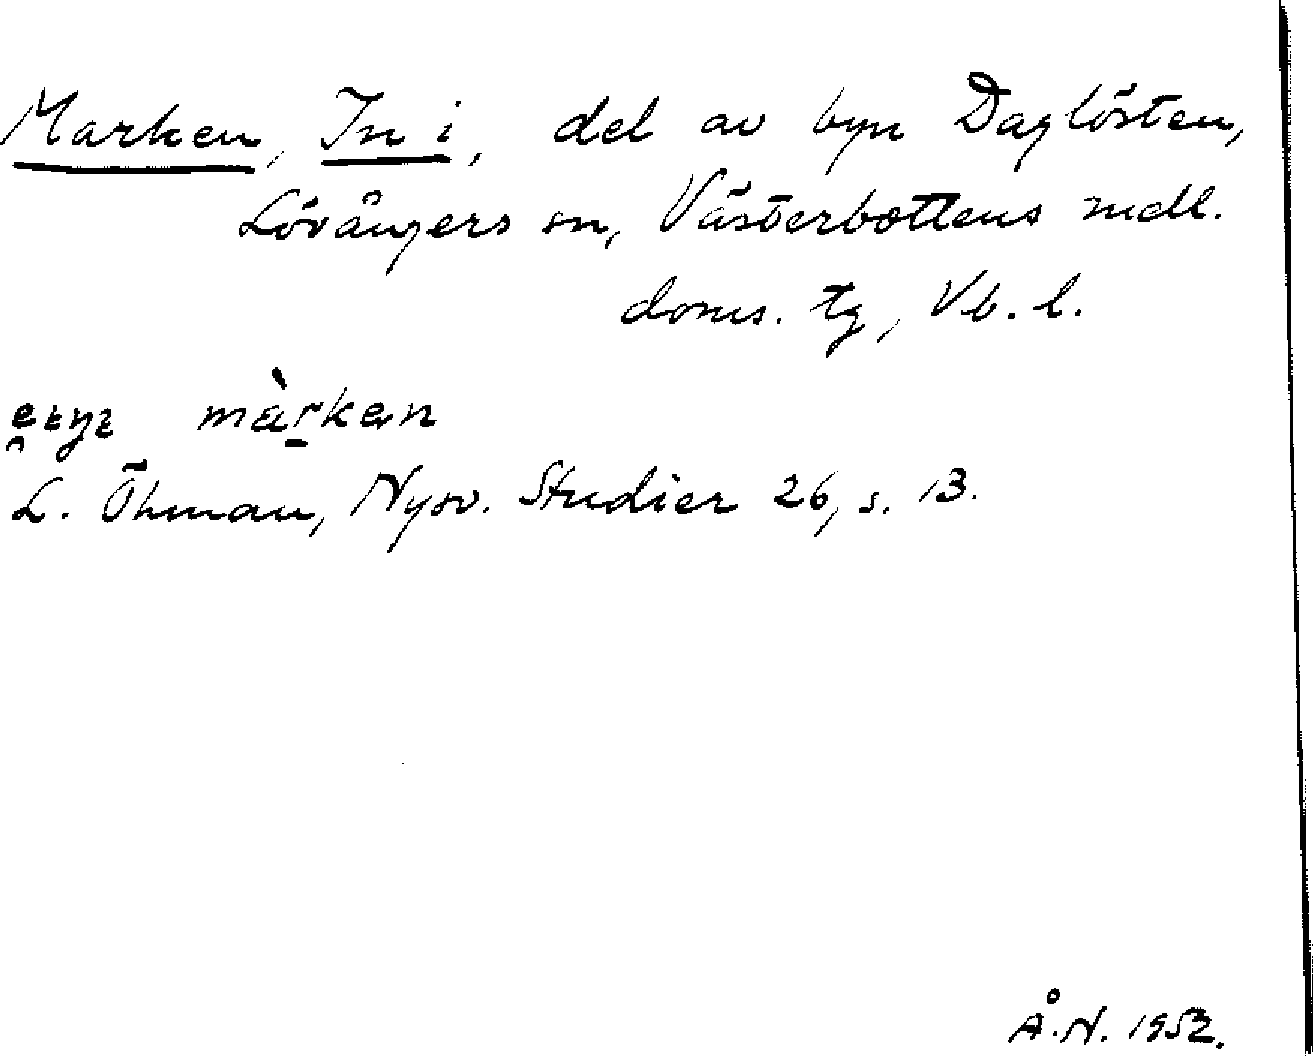 Marken, In i, del av byn Daglösten,
Lövångers sn, Västerbottens medl.
doms. tg, Vb. l.
màrken
L. Öhman, Nysv. Studier 26, s. 13.
Å.N. 1952.